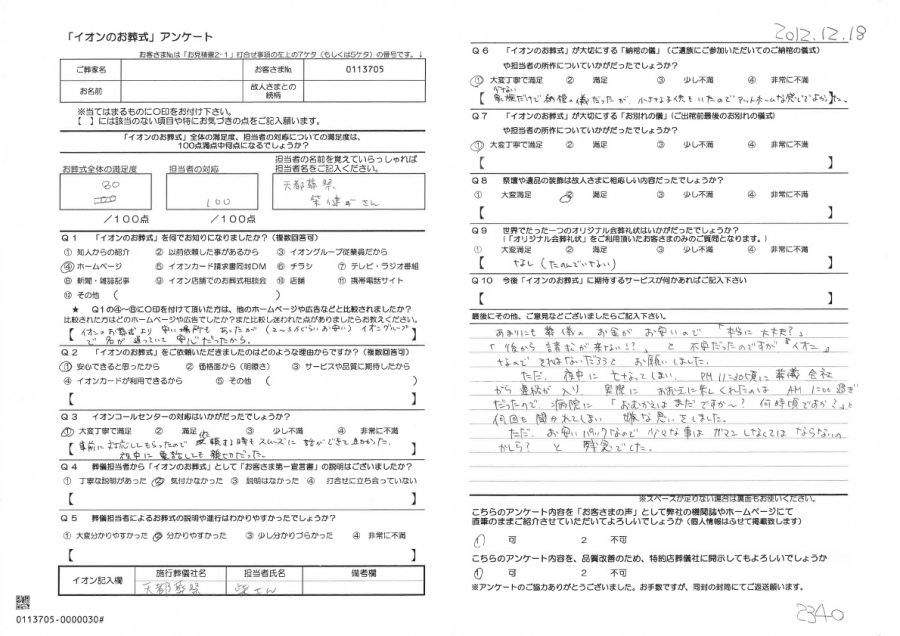 「イオンのお葬式」アンケート
お客さま№は「お見積書2-1」打合せ事項の左上の7ケタ（もしくは5ケタ）の番号です。↓
ご葬家名 お客さま№ 0113705
お名前 故人さまとの続柄
※当てはまるものに○印をお付け下さい。
【　】には該当のない項目や特にお気づきの点をご記入願います。
「イオンのお葬式」全体の満足度、担当者の対応についての満足度は、
100点満点中何点になるでしょうか？
お葬式全体の満足度 担当者の対応 担当者の名前を覚えていらっしゃれば
担当者名をご記入ください。
80 100 天都葬祭
柴 さん
／100点 ／100点
Q1 「イオンのお葬式」を何でお知りになりましたか？（複数回答可）
① 知人からの紹介 ② 以前依頼した事があるから ③ イオングループ従業員だから
④ ホームページ ⑤ イオンカード請求書同封DM ⑥ チラシ ⑦ テレビ・ラジオ番組
⑧ 新聞・雑誌記事 ⑨ イオン店舗でのお葬式相談会 ⑩ 店舗 ⑪ 携帯電話サイト
⑫ その他（　　）
★ Q1の④～⑧に○印を付けて頂いた方は、他のホームページや広告などと比較されましたか？
比較された方はどのホームページや広告でしたか？また比較し迷われた点がありましたらお教えください。
【イオンのお葬式より安い場所もあったが（2～3万ぐらいお安い）イオングループ
で名が通っていて安心だったから。】
Q2 「イオンのお葬式」をご依頼いただきましたのはどのような理由からですか？（複数回答可）
① 安心できると思ったから ② 価格面から（明瞭さ） ③ サービスや品質に期待したから
④ イオンカードが利用できるから ⑤ その他（　　）
【　　】
Q3 イオンコールセンターの対応はいかがだったでしょうか？
① 大変丁寧で満足 ② 満足 ③ 少し不満 ④ 非常に不満
【事前に対応してもらったので依頼する時もスムーズに話ができて良かった。
夜中に電話しても親切だった。】
Q4 葬儀担当者から「イオンのお葬式」として「お客さま第一宣言書」の説明はございましたか？
① 丁寧な説明があった ② 気付かなかった ③ 説明はなかった ④ 打合せに立ち会っていない
【　　】
Q5 葬儀担当者によるお葬式の説明や進行はわかりやすかったでしょうか？
① 大変分かりやすかった ② 分かりやすかった ③ 少し分かりづらかった ④ 非常に不満
【　　】
イオン記入欄 施行葬儀社名 担当者氏名 備考欄
天都葬祭 柴さん
0113705-0000030#
2012.12.18
Q6 「イオンのお葬式」が大切にする「納棺の儀」（ご遺族にご参加いただいてのご納棺の儀式）
や担当者の所作についていかがだったでしょうか？
① 大変丁寧で満足 ② 満足 ③ 少し不満 ④ 非常に不満
【少ない家族だけで納棺の儀だったが、小さな子供もいたのでアットホームな感じでよかった。】
Q7 「イオンのお葬式」が大切にする「お別れの儀」（ご出棺前最後のお別れの儀式）
や担当者の所作についていかがだったでしょうか？
① 大変丁寧で満足 ② 満足 ③ 少し不満 ④ 非常に不満
【　　】
Q8 祭壇や遺品の装飾は故人さまに相応しい内容だったでしょうか？
① 大変満足 ② 満足 ③ 少し不満 ④ 非常に不満
【　　】
Q9 世界でたった一つのオリジナル会葬礼状はいかがだったでしょうか？
（「オリジナル会葬礼状」をご利用頂いたお客さまのみのご質問となります。）
① 大変満足 ② 満足 ③ 少し不満 ④ 非常に不満
【なし（たのんでいない）】
Q10 今後「イオンのお葬式」に期待するサービスが何かあればご記入下さい
【　　】
最後にその他、ご意見などございましたらご記入下さい。
あまりにも葬儀のお金がお安いので「本当に大丈夫？」
「後から請求が来ない！？」と不安だったのですが『イオン』
なのでそれはないだろうとお願いしました。
ただ、夜中に亡なってしまい、PM11:30頃に葬儀会社
から連絡が入り、実際におむかえに来てくれたのはAM1:00過ぎ
だったので、病院に「おむかえはまだですか～？何時頃ですか？」と
何回も聞かれてしまい嫌な思いをしました。
ただ、お安いパックなので少々な事はガマンしなくてはならないの
かしら？と残念でした。
※スペースが足りない場合は裏面もお使いください。
こちらのアンケート内容を「お客さまの声」として弊社の機関誌やホームページにて
直筆のままご紹介させていただいてよろしいでしょうか（個人情報はふせて掲載致します）
1 可 2 不可
こちらのアンケート内容を、品質改善のため、特約店葬儀社に開示してもよろしいでしょうか
① 可 2 不可
※アンケートのご協力ありがとうございました。お手数ですが、同封の封筒にてご返送願います。
2340